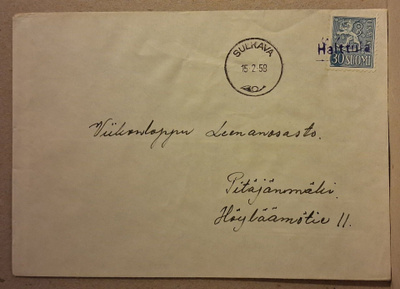 SULKAVA
15.2.58
Halttula
30 SUOMI
Viikonloppu Leenanosasto.
Pitäjänmäki.
Höyläämötie 11.